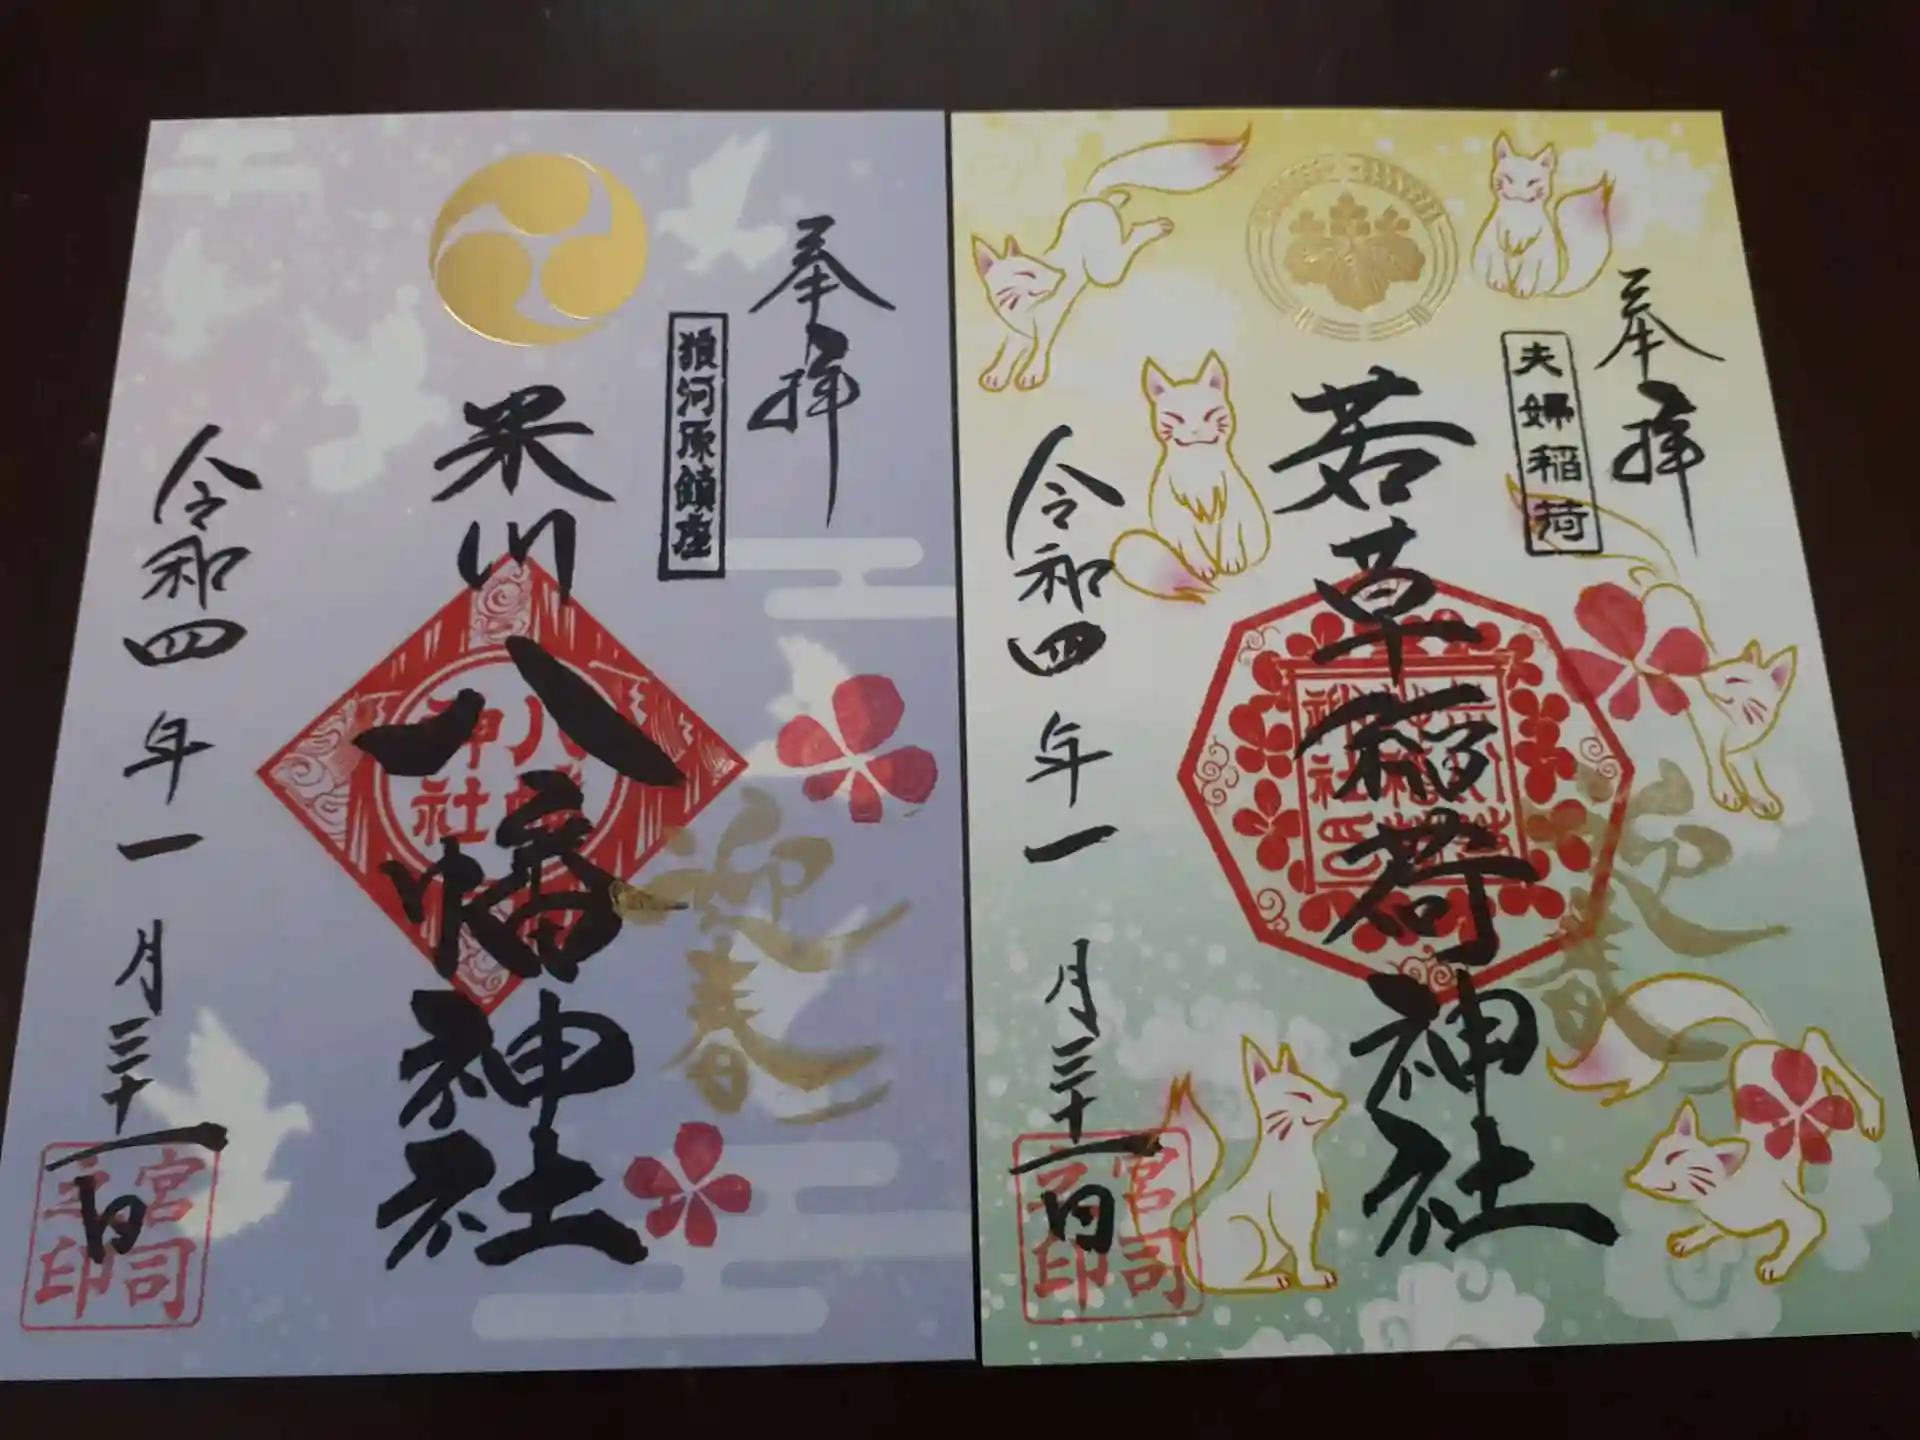 奉拝
狼河原鎮座
米川八幡神社
八幡神社
迎春
令和四年一月三十一日
宮司之印
奉拝
夫婦稲荷
若草稲荷神社
迎春
令和四年一月三十一日
宮司之印